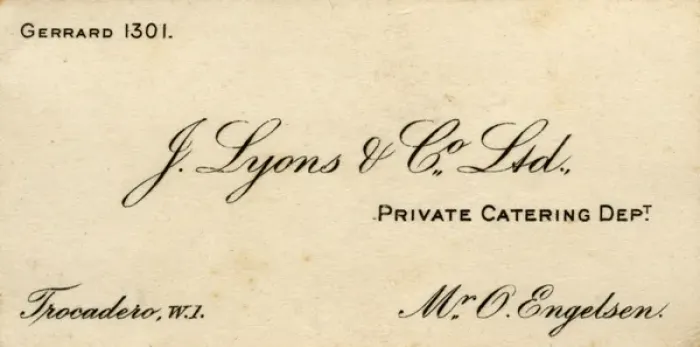 GERRARD 1301.
J. Lyons & Co. Ltd.,
PRIVATE CATERING DEPT
Trocadero, W.1.
Mr. O. Engelsen.